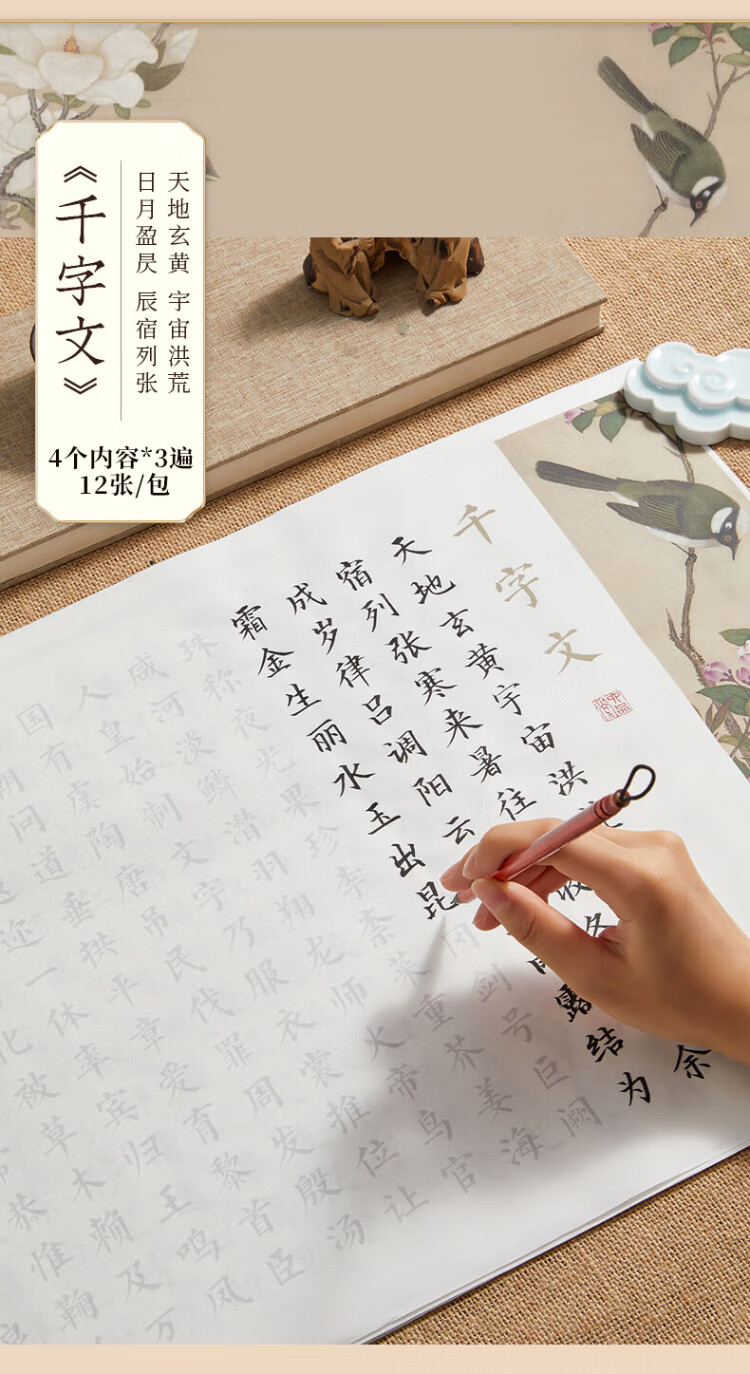 《千字文》
天地玄黄 宇宙洪荒
日月盈昃 辰宿列张
4个内容*3遍
12张/包
千字文
天地玄黄宇宙洪
宿列张寒来暑往收冬余
成岁律吕调阳云露结为
霜金生丽水玉出昆冈剑号巨阙
珠称夜光果珍李柰菜重芥姜海
咸河淡鳞潜羽翔龙师火帝鸟官
人皇始制文字乃服衣裳推位让
国有虞陶唐吊民伐罪周发殷汤
朝问道垂拱平章爱育黎首臣
迩一体率宾归王鸣凤
化被草木赖及万
恭惟鞠